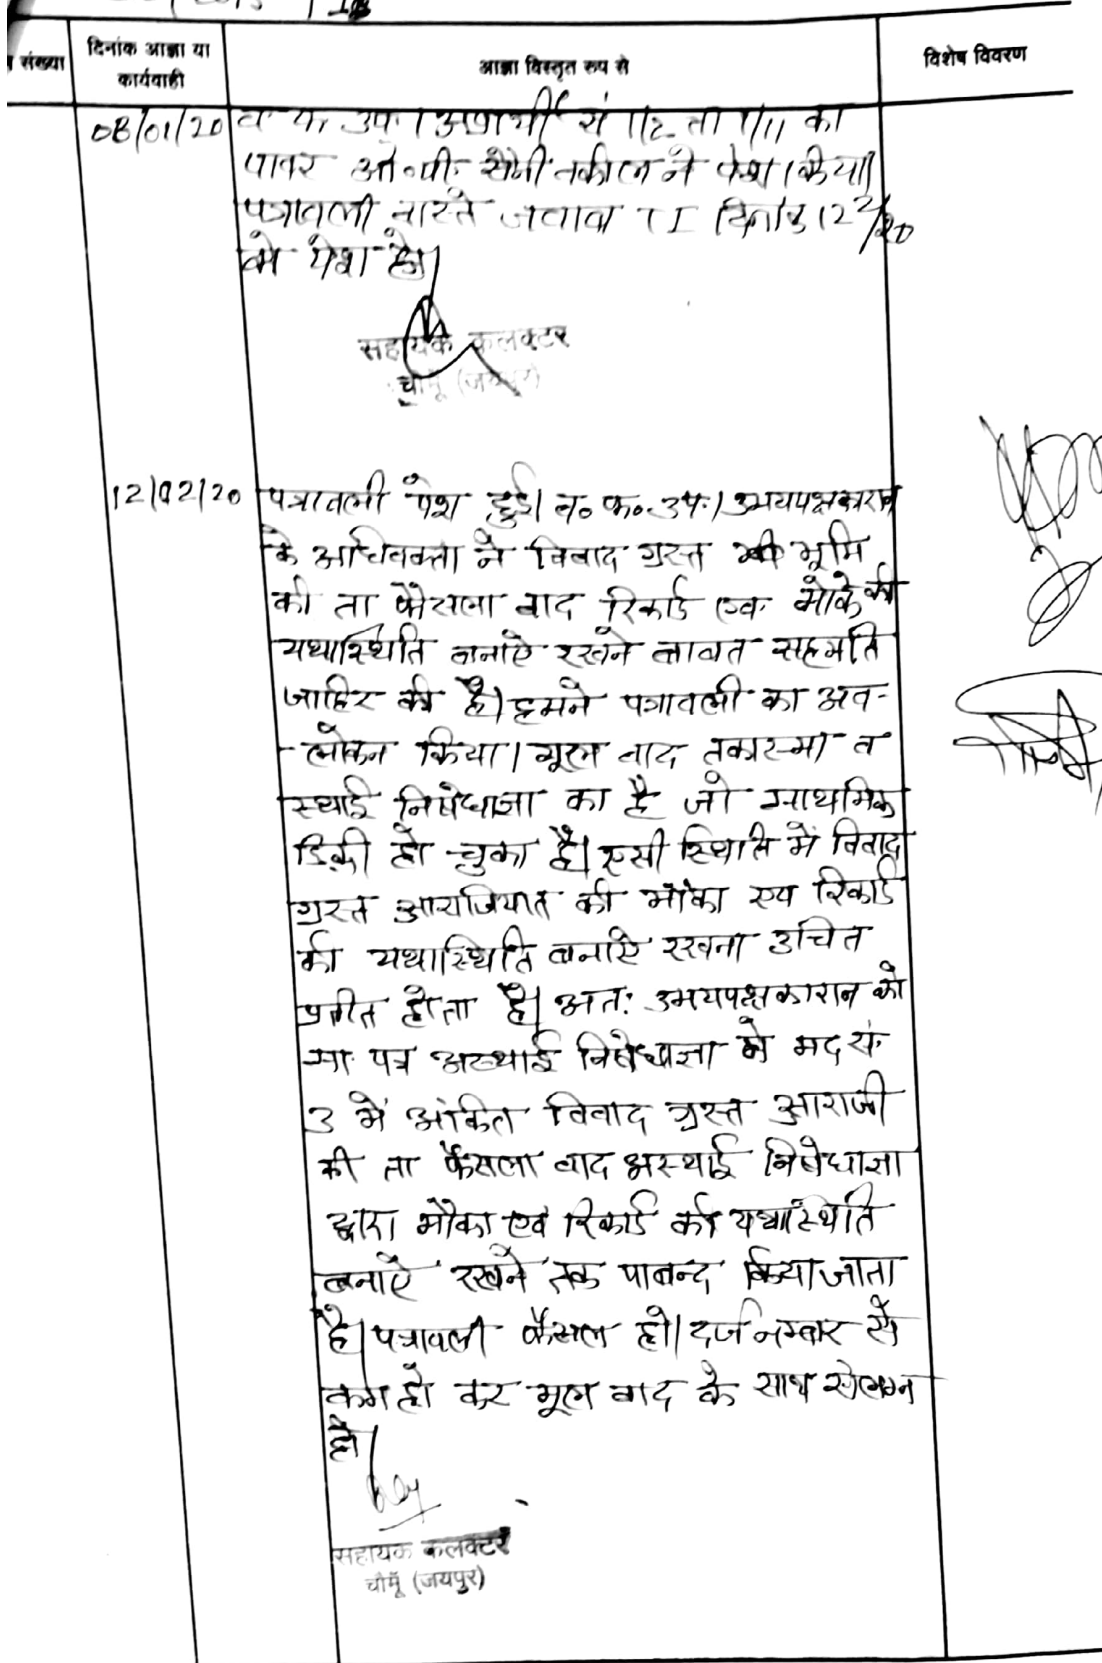 संख्या
दिनांक आज्ञा या
कार्यवाही
आज्ञा विस्तृत रूप से
विशेष विवरण
08/01/20 व फ उप। अप्रार्थी सं 1/2 ता 1/11 का
पावर ओ०पी० सैनी वकील ने पेश किया।
पत्रावली वास्ते जवाब TI दिनांक 12/2/20
को पेश हो।
सहायक कलक्टर
चौमूँ (जयपुर)
12/02/20 पत्रावली पेश हुई। व० फ०.उप.। उभयपक्षकारान
के अधिवक्ता ने विवाद ग्रस्त भूमि
की ता फैसला वाद रिकार्ड एवं मौके की
यथास्थिति बनाऐ रखने बाबत सहमति
जाहिर की है। हमने पत्रावली का अव-
-लोकन किया। मूल वाद तकास्मा व
स्थाई निषेधाज्ञा का है जो प्राथमिक
डिक्री हो चुका है। एसी स्थिति में विवाद
ग्रस्त आराजियात की मौका एव रिकार्ड
की यथास्थिति बनाऐ रखना उचित
प्रतीत होता है। अतः उभयपक्षकारान को
प्रा. पत्र अस्थाई निषेधाज्ञा के मद सं.
3 में अंकित विवाद ग्रस्त आराजी
की ता फैसला वाद अस्थाई निषेधाज्ञा
द्वारा मौका एवं रिकार्ड की यथास्थिति
बनाऐ रखने तक पाबन्द किया जाता
है। पत्रावली फैसल हो। दर्ज नम्बर से
कम हो कर मूल वाद के साथ संलग्न
हो।
सहायक कलक्टर
चौमूँ (जयपुर)